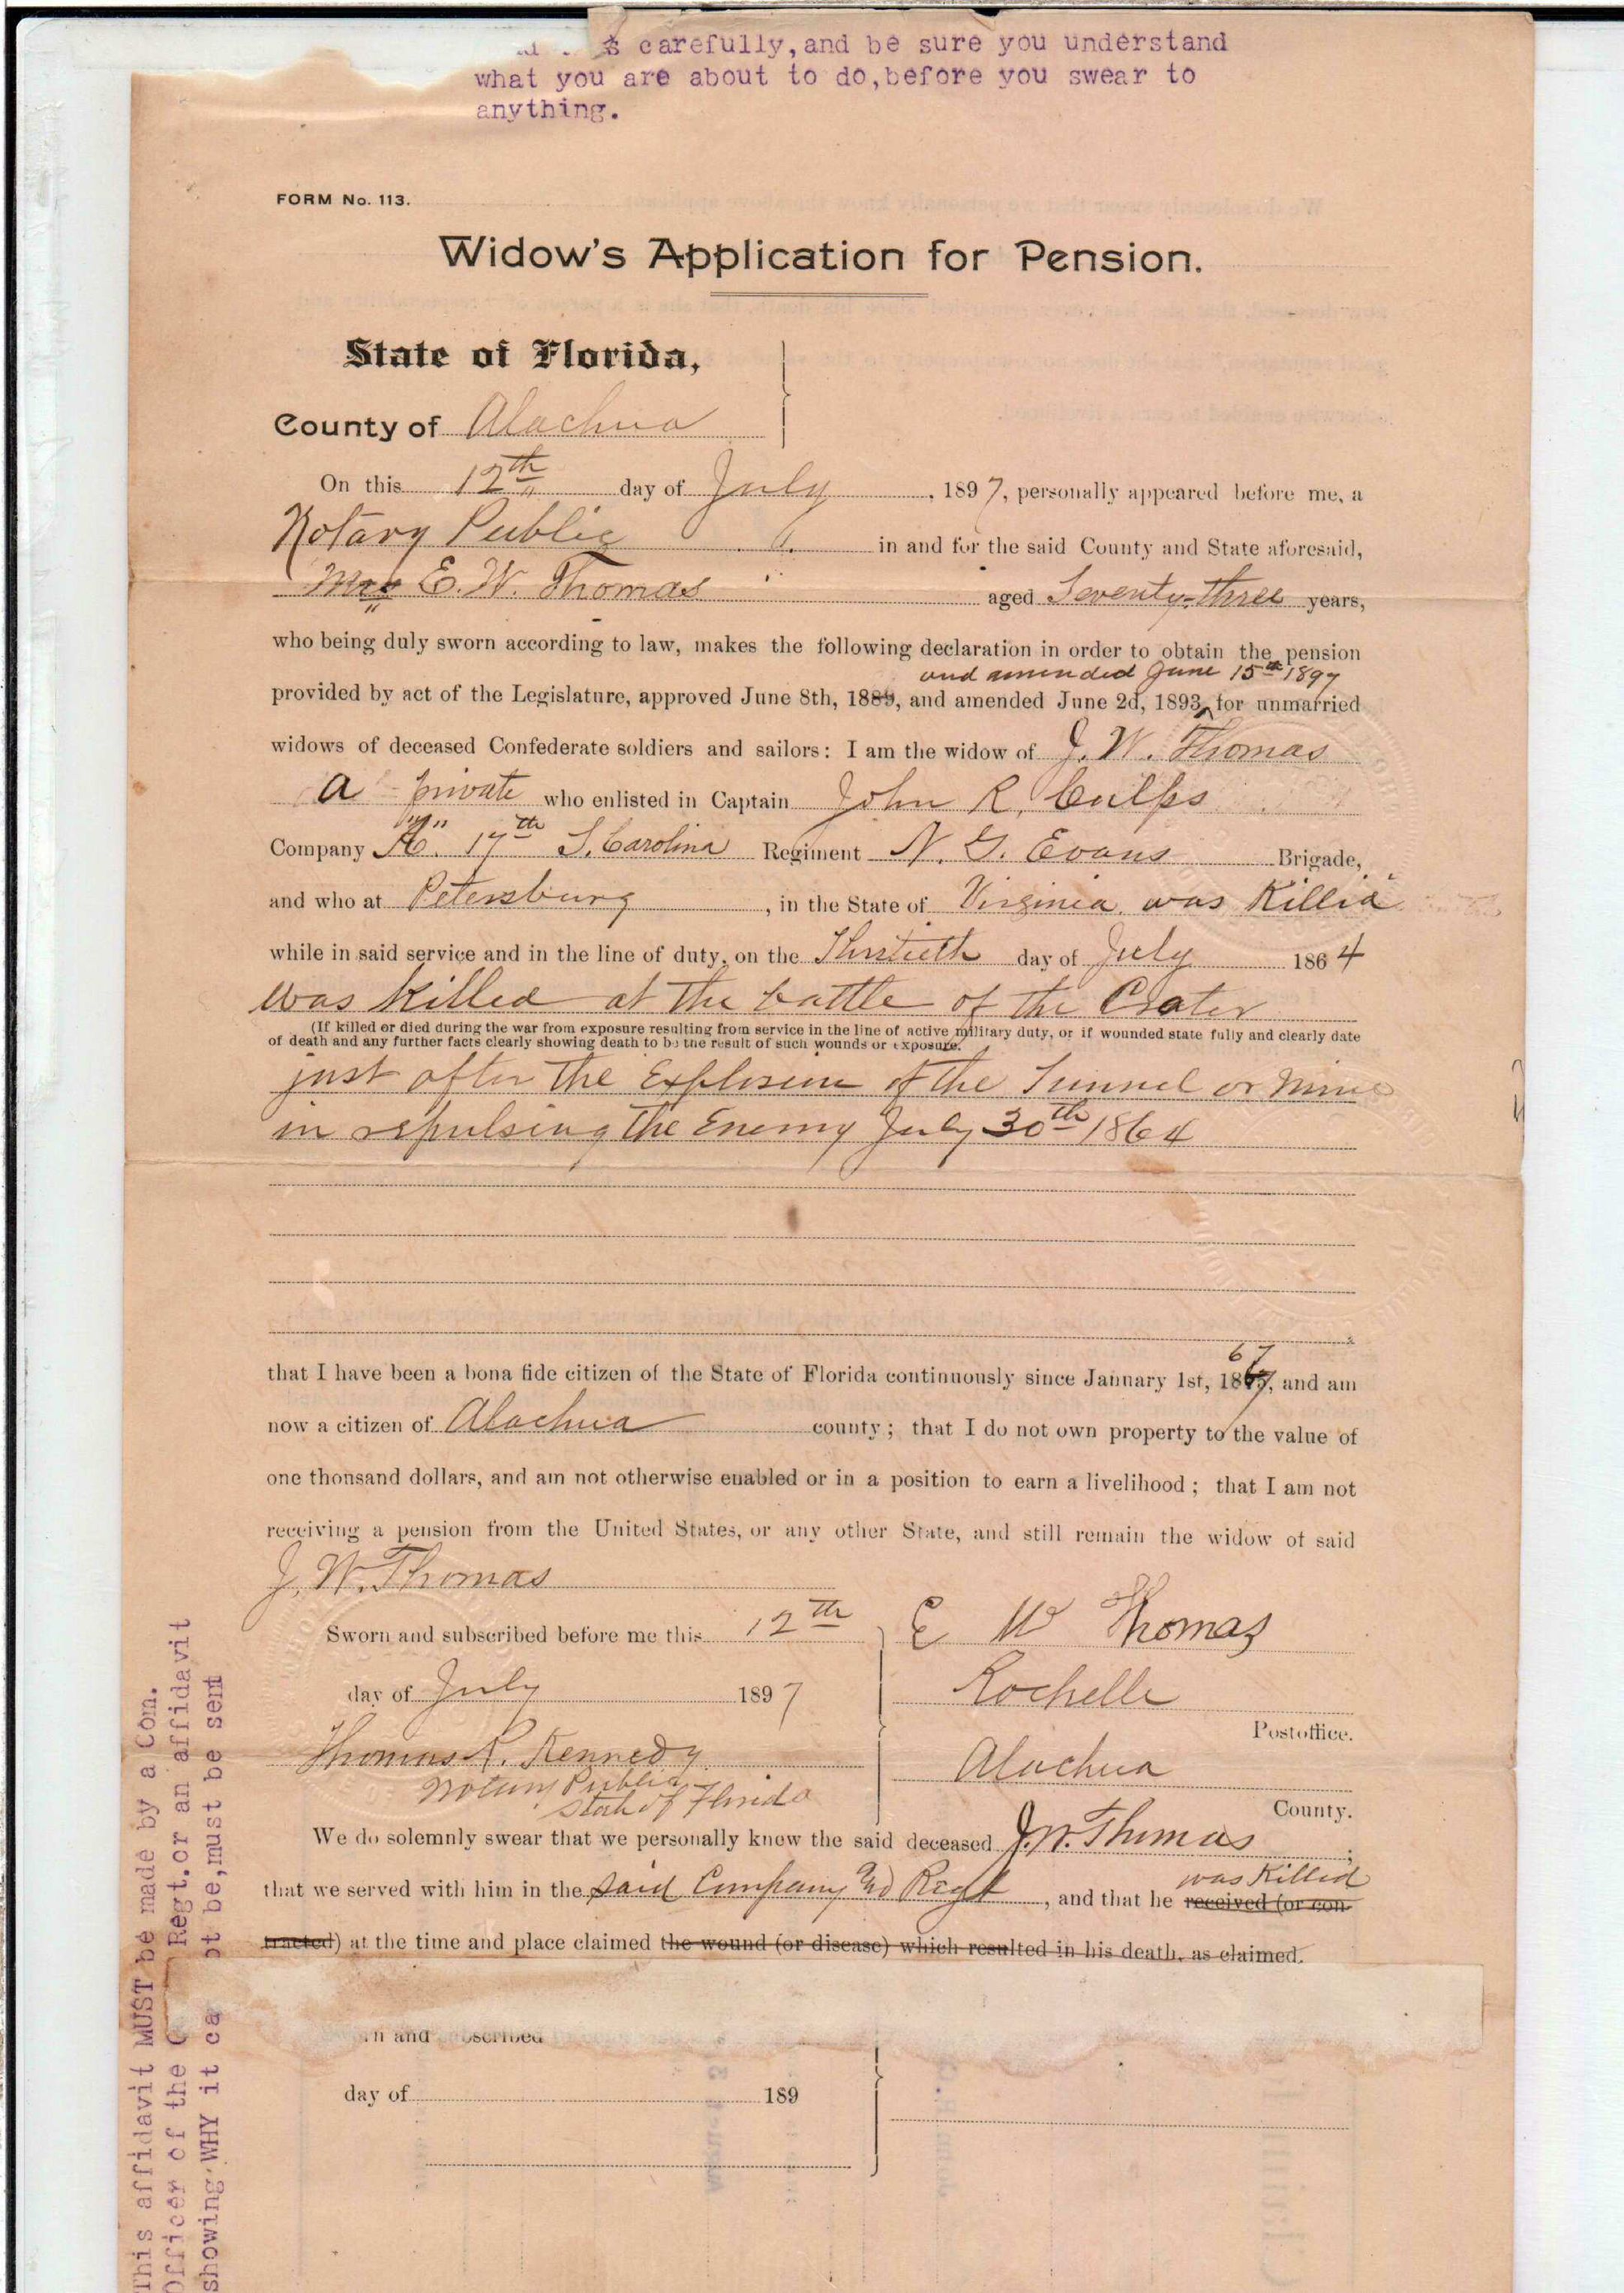 carefully, and be sure you understand
what you are about to do, before you swear to
anything.
FORM No. 113.
Widow's Application for Pension.
State of Florida,
County of Alachua
On this 12th day of July, 1897, personally appeared before me, a
Notary Public in and for the said County and State aforesaid,
Mrs E. W. Thomas aged Seventy-three years,
who being duly sworn according to law, makes the following declaration in order to obtain the pension
and amended June 15th 1897
provided by act of the Legislature, approved June 8th, 1889, and amended June 2d, 1893, for unmarried
widows of deceased Confederate soldiers and sailors: I am the widow of J. W. Thomas
a private who enlisted in Captain John R. Culps
Company 17th S. Carolina Regiment N. G. Evans Brigade,
and who at Petersburg, in the State of Virginia was Killid
while in said service and in the line of duty, on the Thirtieth day of July 1864
was killed at the battle of the Crater
(If killed or died during the war from exposure resulting from service in the line of active military duty, or if wounded state fully and clearly date
of death and any further facts clearly showing death to be the result of such wounds or exposure.
just after the Explosion of the Tunnel or Mine
in repulsing the Enemy July 30th 1864
67
that I have been a bona fide citizen of the State of Florida continuously since January 1st, 18, and am
now a citizen of Alachua county; that I do not own property to the value of
one thousand dollars, and am not otherwise enabled or in a position to earn a livelihood; that I am not
receiving a pension from the United States, or any other State, and still remain the widow of said
J. W. Thomas
Sworn and subscribed before me this 12th
day of July 1897
Thomas R. Kennedy
Notary Public
State of Florida
E W Thomas
Rochelle
Postoffice.
Alachua
County.
We do solemnly swear that we personally knew the said deceased J. W. Thomas;
was Killed
that we served with him in the said Company and Regt, and that he received (or con-
tracted) at the time and place claimed the wound (or disease) which resulted in his death, as claimed.
and subscribed
day of 189
This affidavit MUST be made by a Com.
Officer of the Regt. or an affidavit
showing WHY it be, must be sent